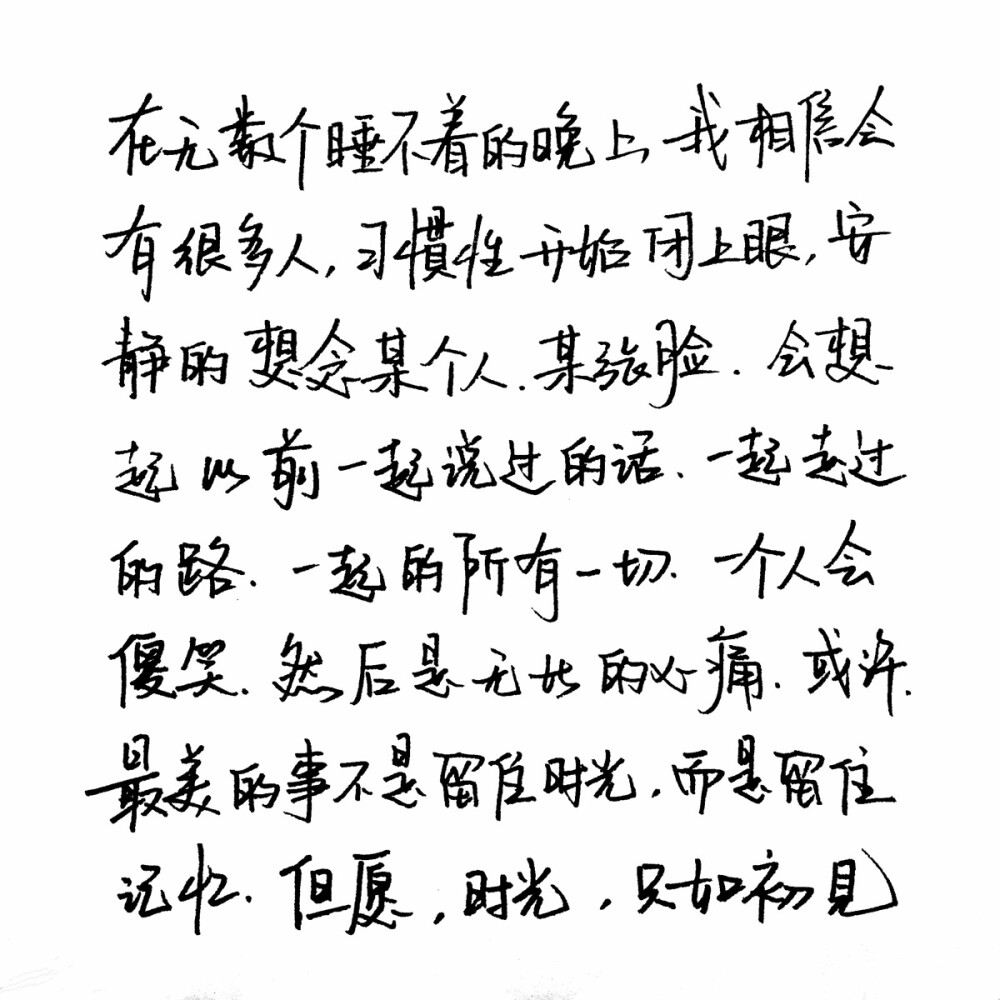 在无数个睡不着的晚上我相信会
有很多人,习惯性开始闭上眼,安
静的想念某个人.某张脸.会想
起以前一起说过的话.一起走过
的路.一起的所有一切.一个人会
傻笑.然后是无比的心痛.或许.
最美的事不是留住时光,而是留住
记忆.但愿,时光,只如初見